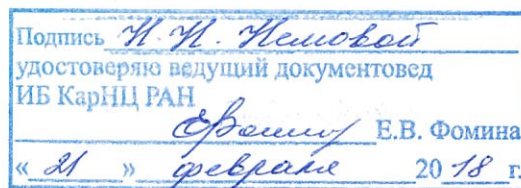 Подпись Н. Н. Немовой
удостоверяю ведущий документовед
ИБ КарНЦ РАН
Е.В. Фомина
« 21 » февраля 20 18 г.